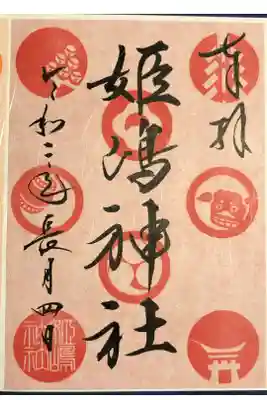 奉拝
姫嶋神社
令和二年長月四日
姫嶋
神社